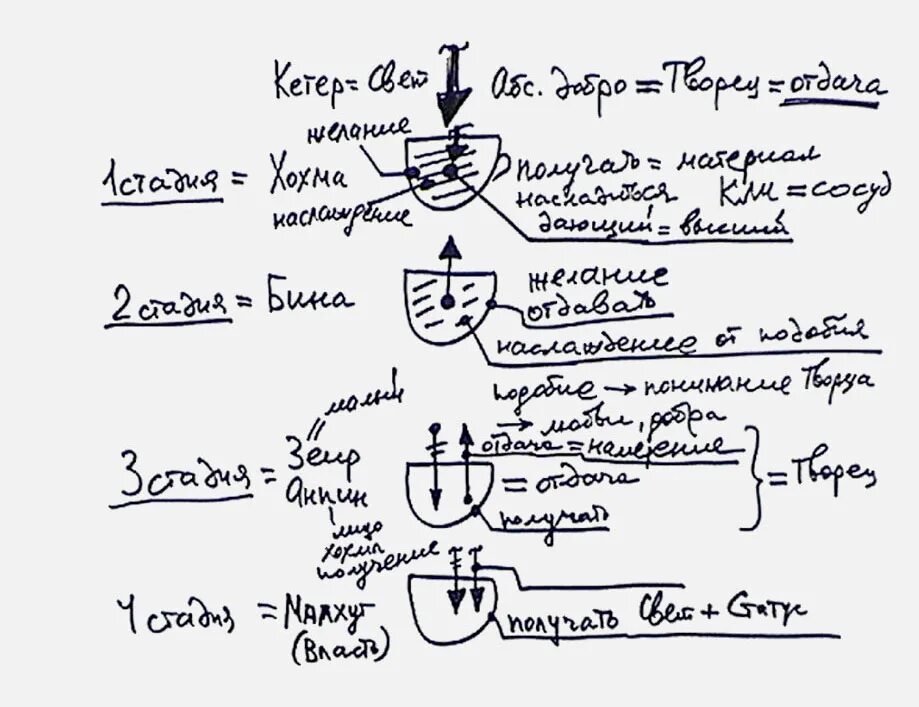 Кетер = Свет Абс. добро = Творец = отдача
желание
1 стадия = Хохма получать = материал
насладиться Кли = сосуд
наслаждение
дающий = высший
2 стадия = Бина желание
отдавать
наслаждение от подобия
подобие → понимание Творца
малый → любви, добра
отдача = намерение
3 стадия = Зеир = отдача = Творец
Анпин получать
лицо
хохма
получение
4 стадия = Малхут получать Свет + Статус
(Власть)